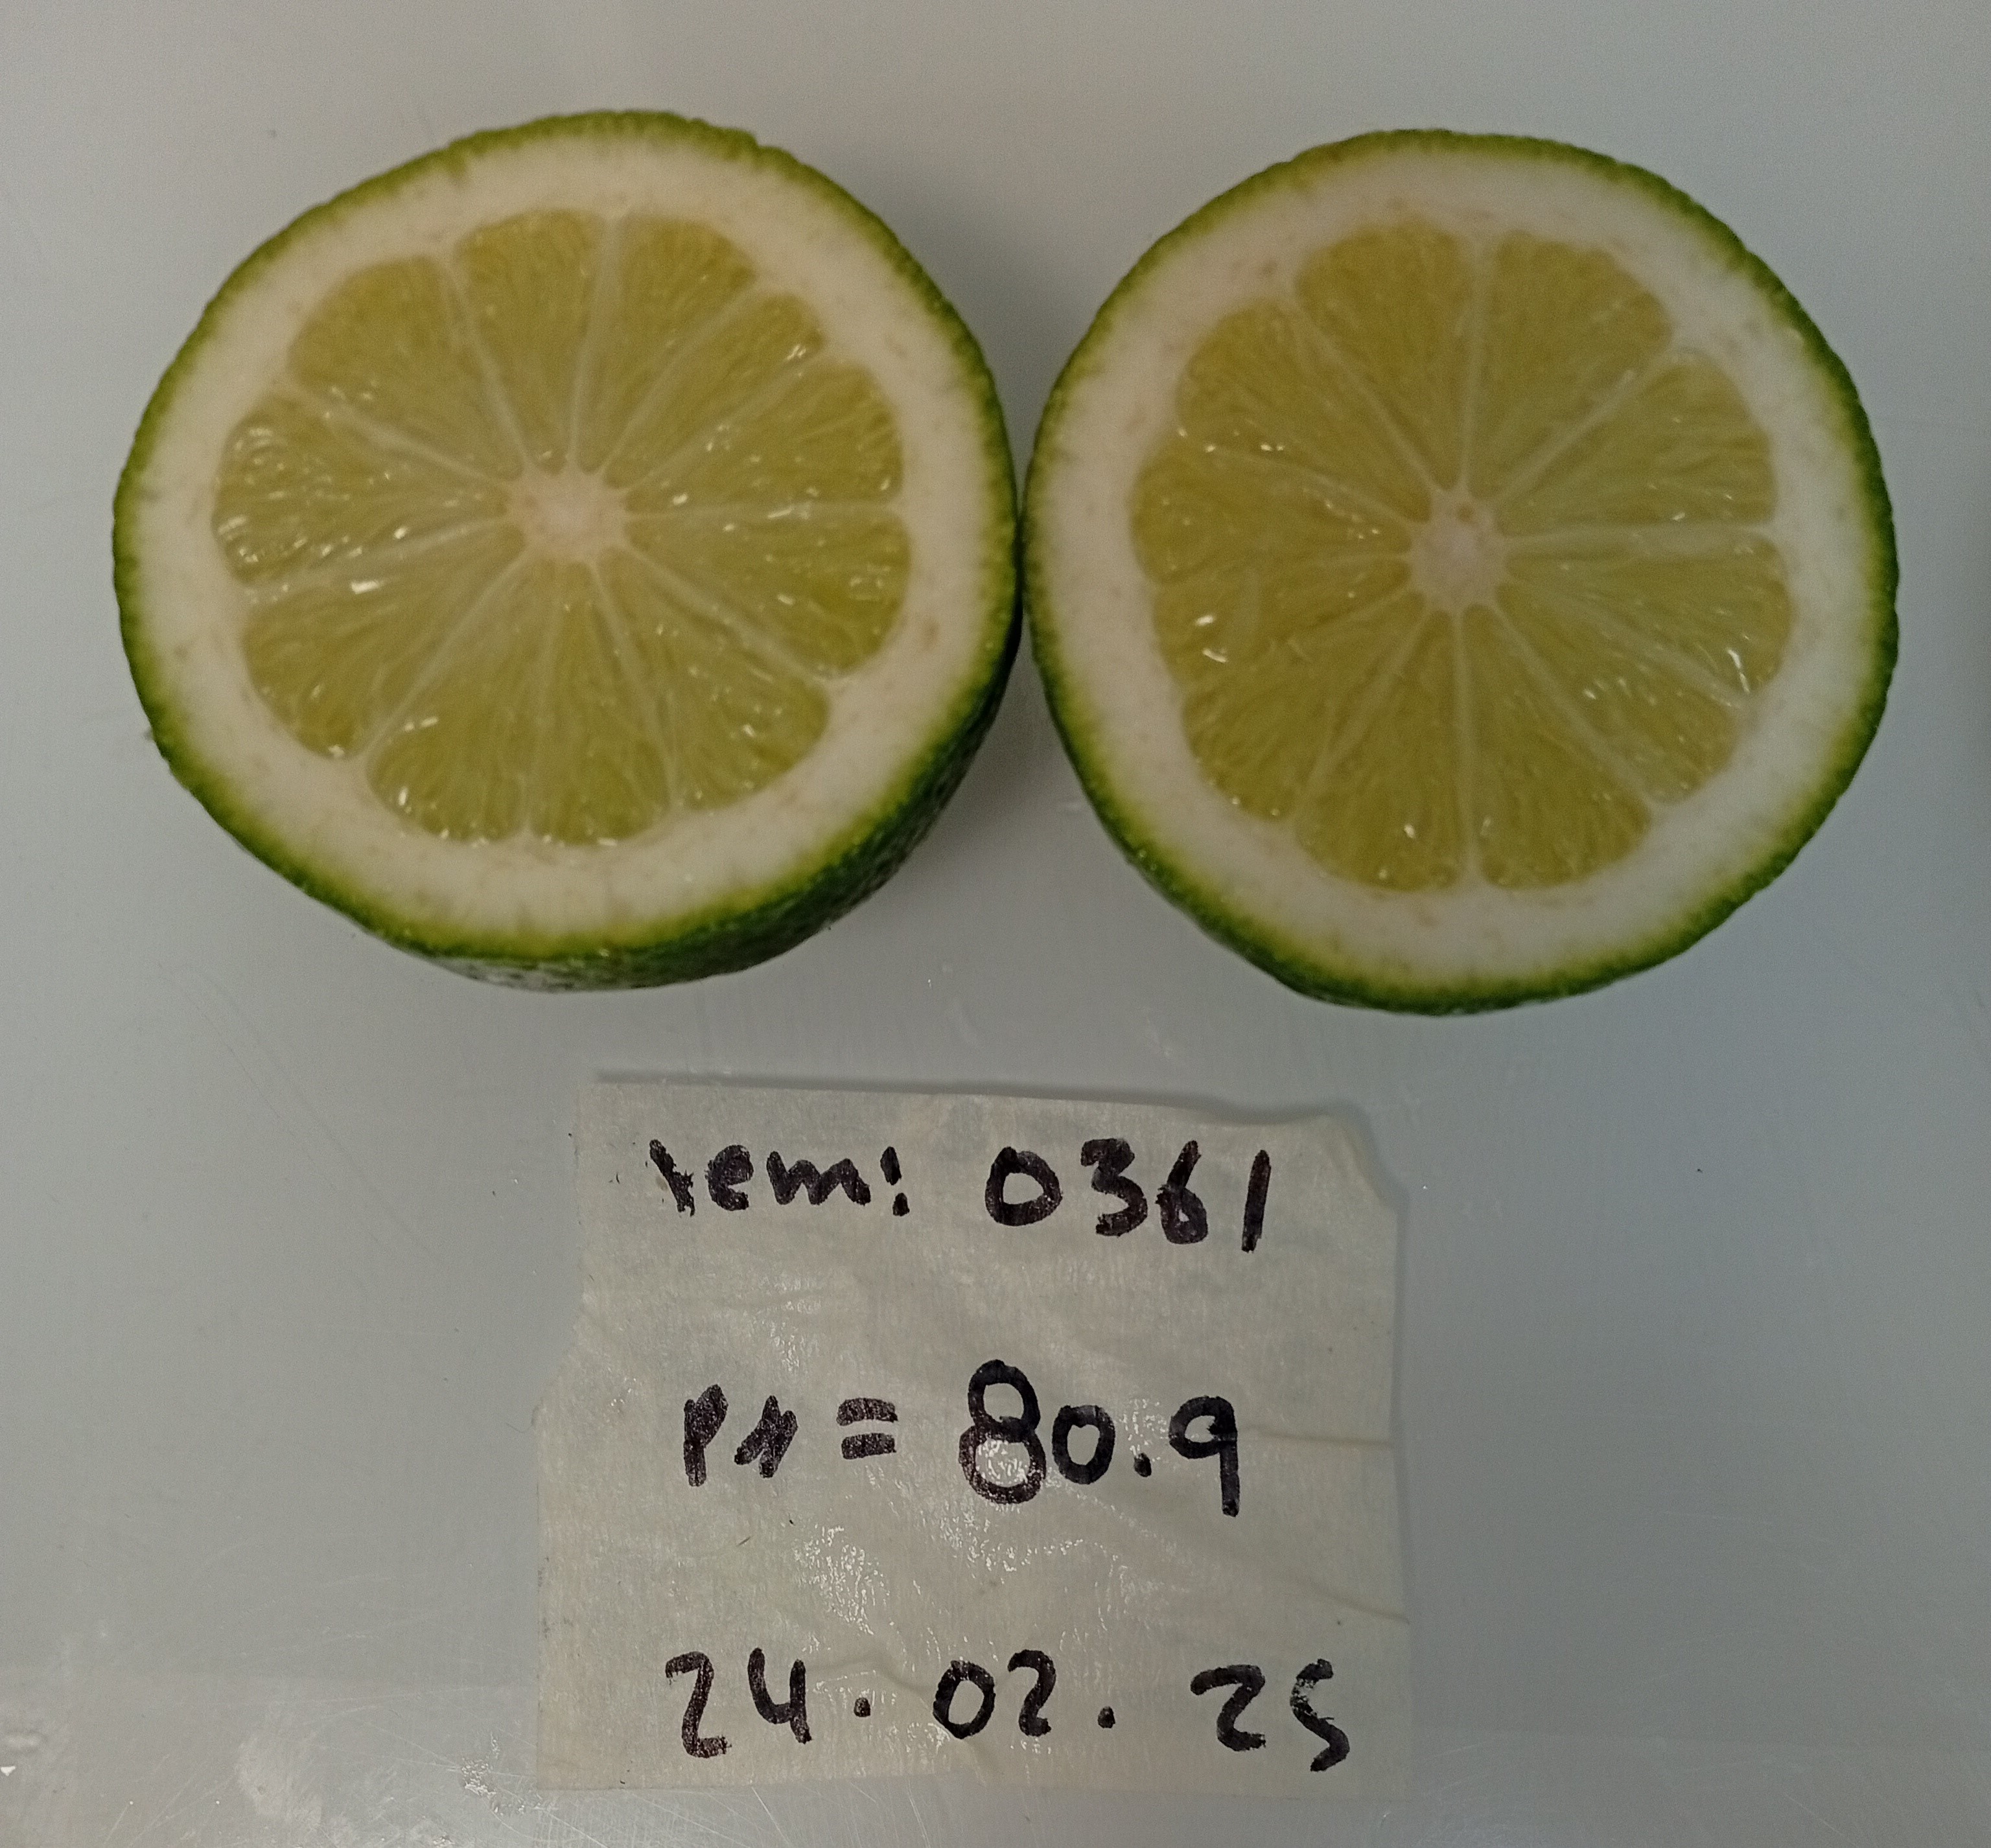 lem: 0361
PH = 80.9
24.02.25